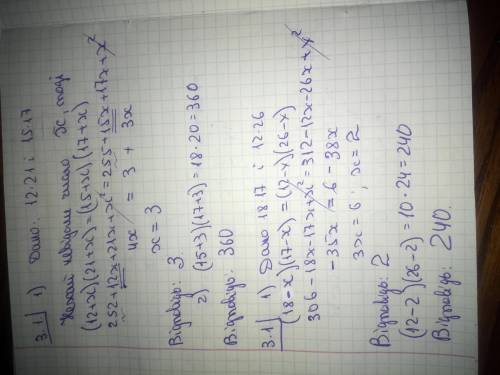 3.1 1) Дано: 12·21 і 15·17
Нехай невідоме число x, тоді
(12+x)(21+x)=(15+x)(17+x)
252+12x+21x+x²=255+15x+17x+x²
4x = 3 + 3x
x = 3
Відповідь: 3
2) (15+3)(17+3)=18·20=360
Відповідь: 360
3.1 1) Дано 18·17 і 12·26
(18-x)(17-x)=(12-x)(26-x)
306-18x-17x+x²=312-12x-26x+x²
-35x = 6 - 38x
3x = 6; x = 2
Відповідь: 2
(12-2)(26-2)=10·24=240
Відповідь: 240.